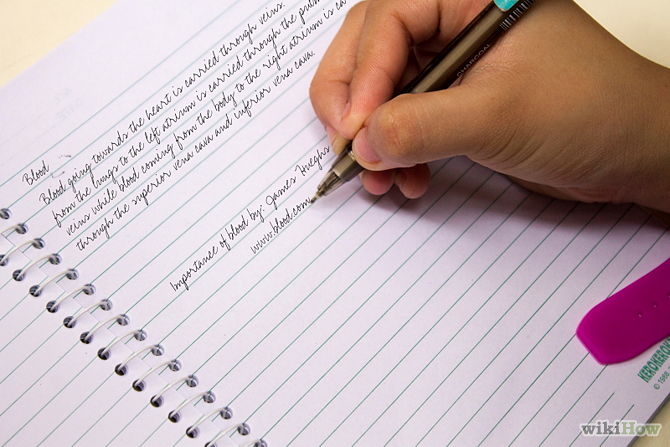 Blood
Blood going towards the heart is carried through veins.
from the lungs to the left atrium is carried through the pulm
veins while blood coming from the body to the right atrium is ca
through the superior vena cava and inferior vena cava.
Importance of blood by: James Hueghs
www.blood.com
CHARCOAL
KEROKEROK
© 198
wikiHow